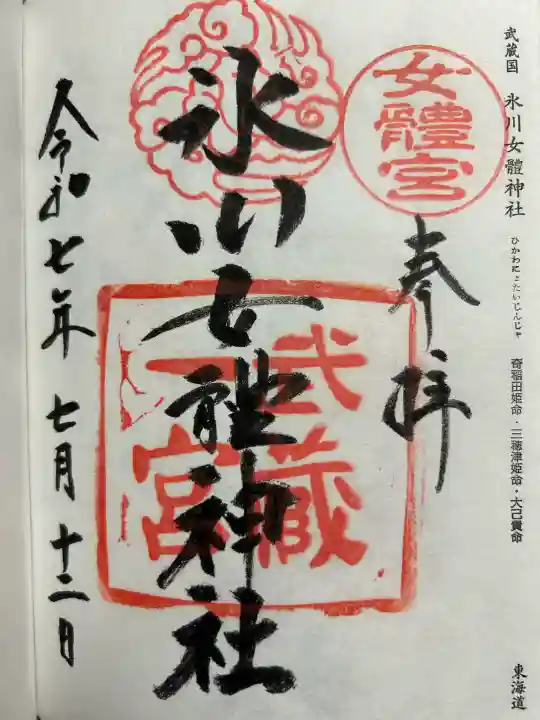 武蔵国 氷川女體神社 ひかわにょたいじんじゃ 奇稲田姫命・三穂津姫命・大己貴命 東海道
女體宮
奉拝
武蔵
一宮
氷川女體神社
令和七年七月十二日